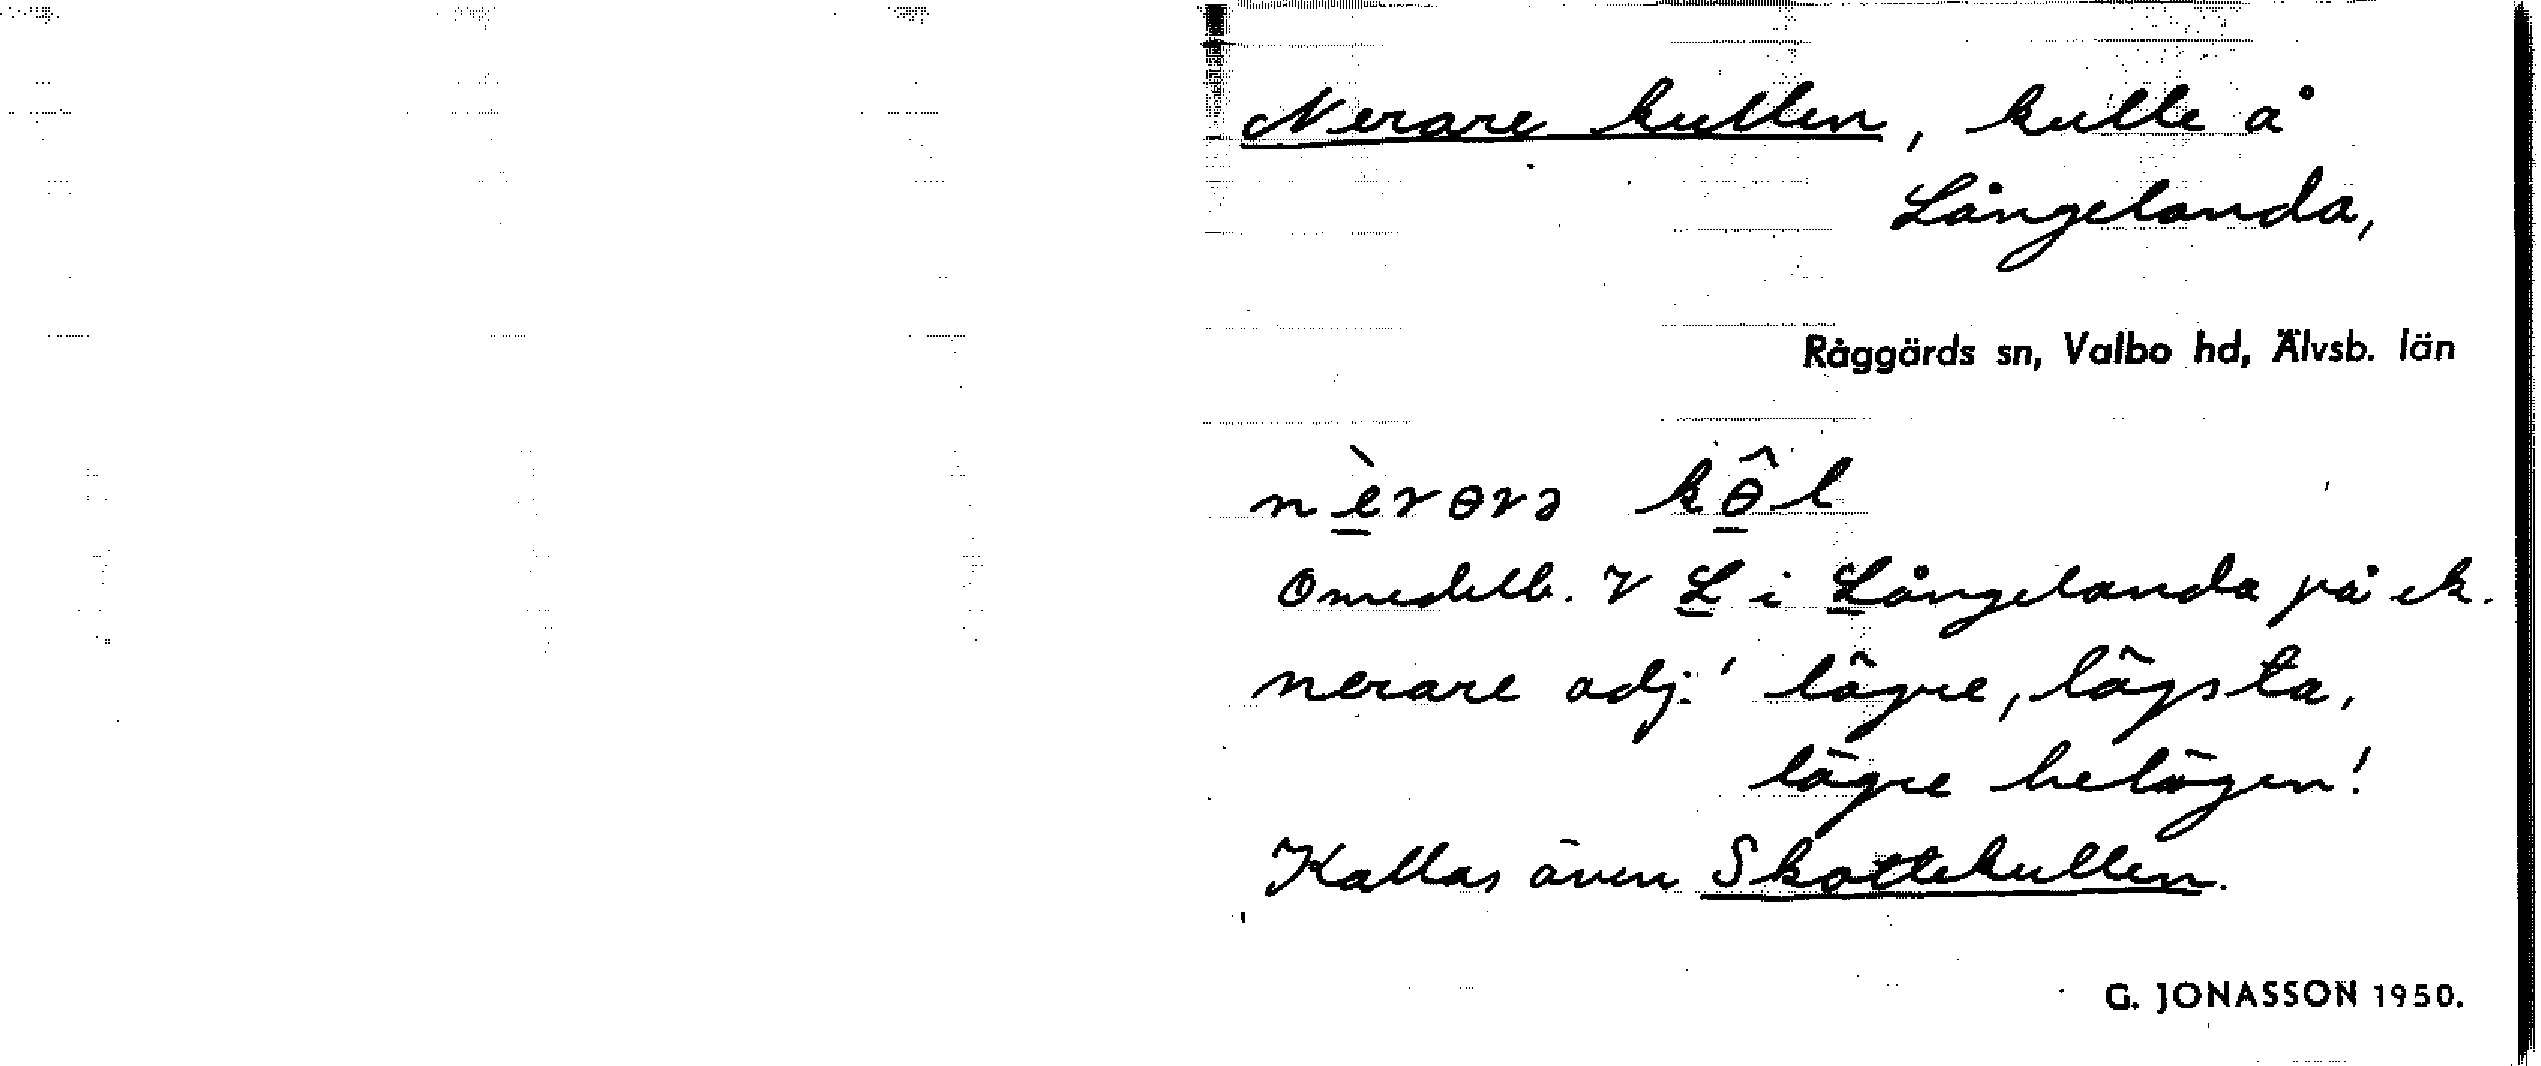 Nerare kullen, kulle å
Långelanda,
Råggärds sn, Valbo hd, Älvsb. län
nèrɵrə kɵ̂l
Omedelb. V L i Långelanda på ek.
nerare adj.' lägre, lägsta,
lägre belägen!
Kallas även Skottekullen.
G. JONASSON 1950.